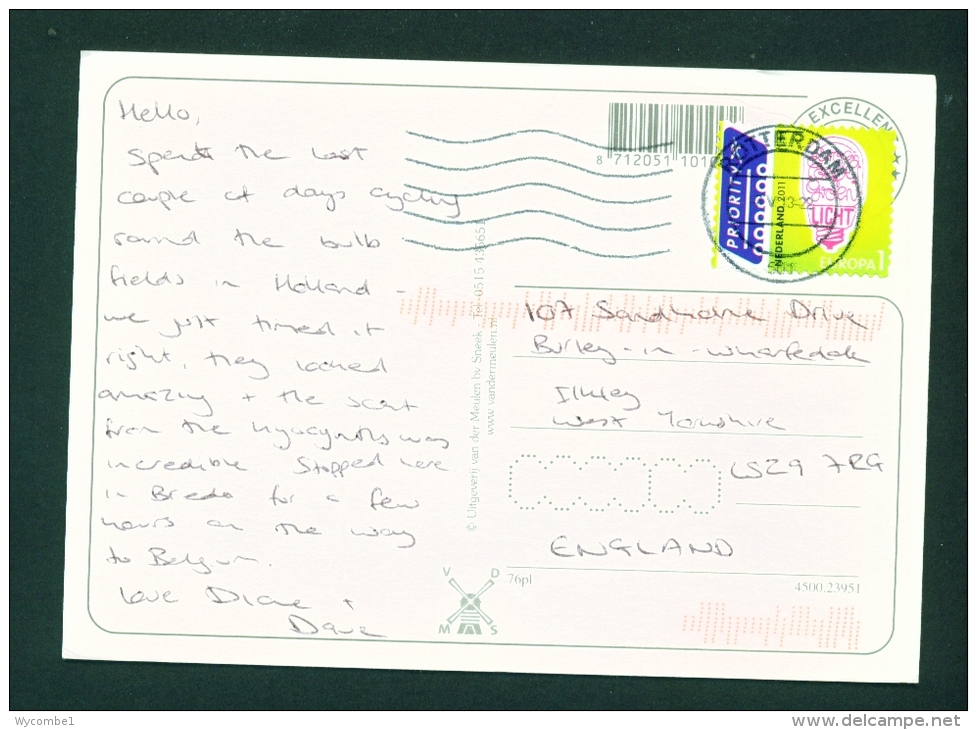 Hello,
Spent the last
couple of days cycling
round the bulb
fields in Holland -
we just timed it
right, they looked
amazing + the scent
from the Hyacynths was
incredible Stopped here
in Breda for a few
hours on the way
to Belgium.
Love Diane +
Dave
8 712051 1010
EXCELLEN
ROTTERDAM
PRIORITY
NEDERLAND 2011
LICHT
EUROPA 1
© Uitgeverij van der Meulen bv Sneek - Tel 0515
www.vandermeulen.nl
107 Sandholme Drive
Burley-in-Wharfedale
Ilkley
West Yorkshire
LS29 7RG
ENGLAND
76pl
4500.23951
V D
M S
Wycombe1
www.delcampe.net